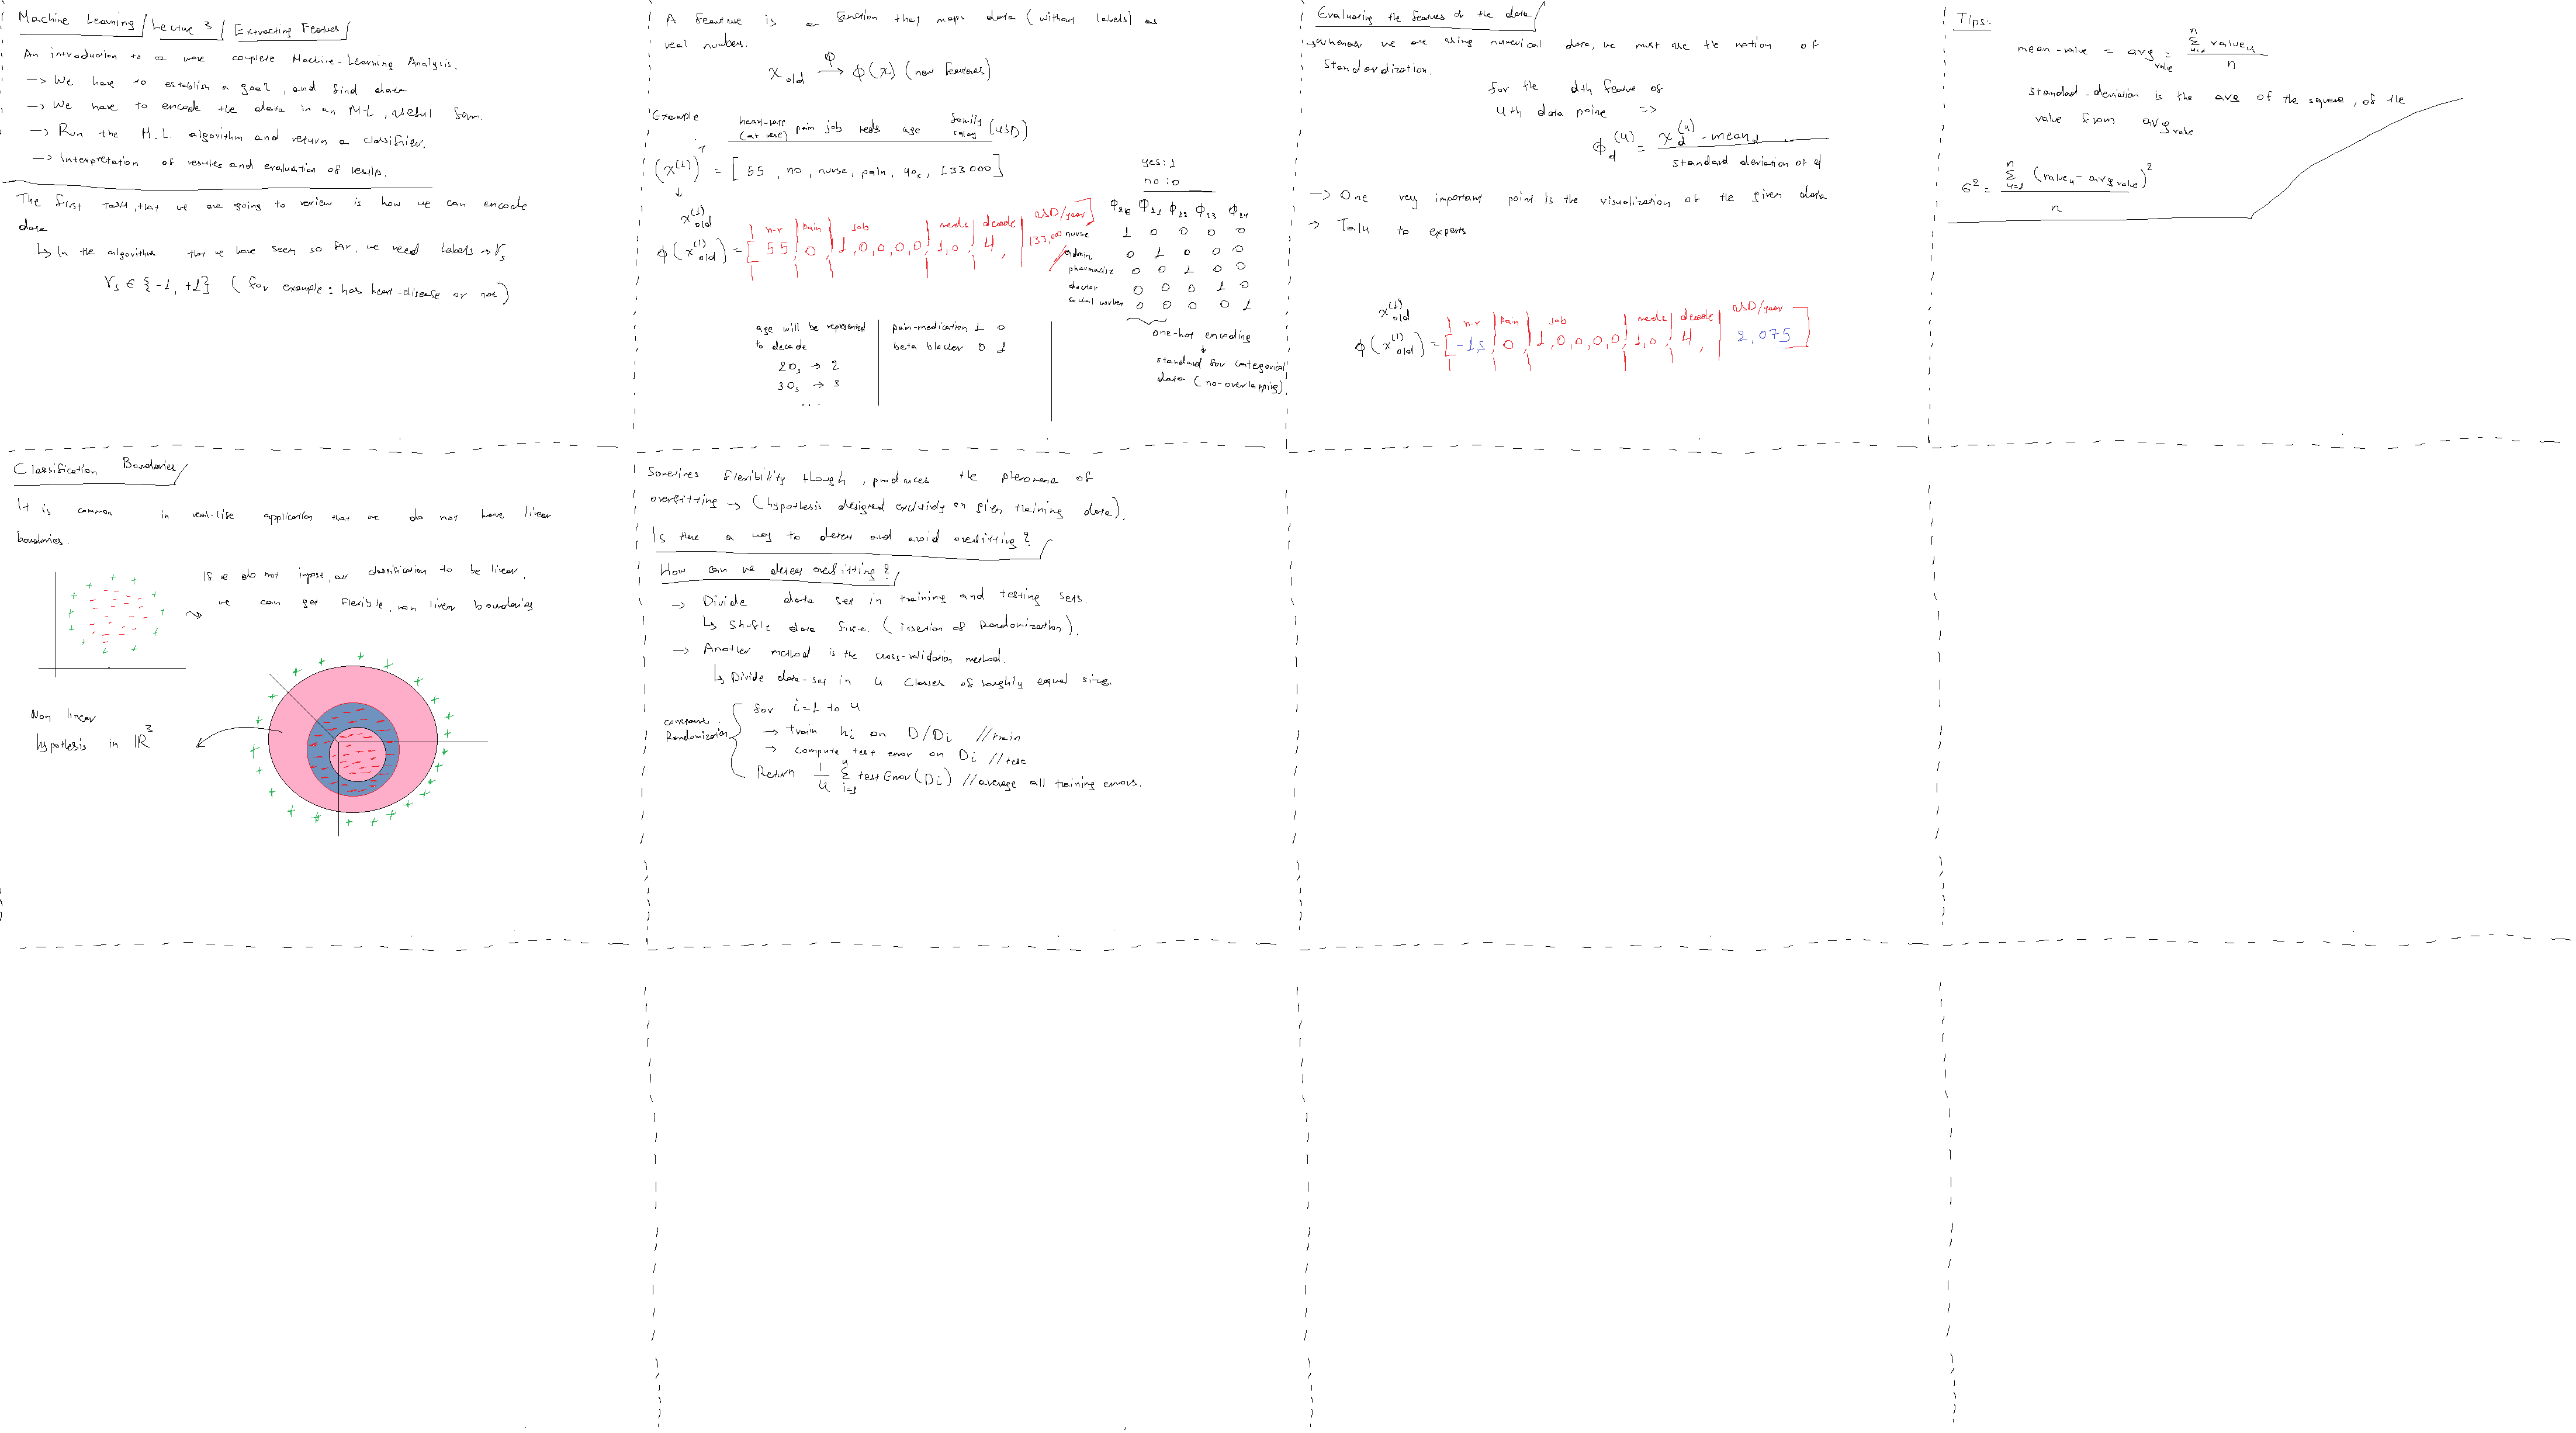 Machine Learning / Lecture 3 / Extracting Features /
An introduction to a more complete Machine-Learning Analysis.
-> We have to establish a goal, and find data
-> We have to encode the data in an M-L, useful form.
-> Run the M.L. algorithm and return a classifier.
-> Interpretation of results and evaluation of results.
The first task, that we are going to review is how we can encode
data
↳ In the algorithms that we have seen so far, we need Labels -> Ys
Ys ∈ {-1, +1} (for example: has heart-disease or not)
A feature is a function that maps data (without labels) as
real numbers.
x old →φ φ(x) (new features)
Example
heart-rate (at rest) pain job meds age family salary (USD)
(x^(1)) = [55, no, nurse, pain, 40s, 133000]
yes: 1
no: 0
x^(1) old
h-r | pain | job | meds | decade | USD/year
φ(x^(1) old) = [55, 0, 1,0,0,0,0, 1,0, 4, 133,000]
nurse 1 0 0 0 0
admin 0 1 0 0 0
pharmacist 0 0 1 0 0
doctor 0 0 0 1 0
social worker 0 0 0 0 1
one-hot encoding
↓
standard for categorical
data (no-overlapping)
age will be represented
to decade
20s -> 2
30s -> 3
...
pain-medication 1 0
beta blocker 0 1
Evaluating the features of the data
-> Whenever we are using numerical data, we must use the notion of
Standardization.
for the dth feature of
kth data point =>
φd^(k) = (xd^(k) - mean d) / standard deviation of d
-> One very important point is the visualization of the given data
-> Talk to experts
x^(1) old
h-r | pain | job | meds | decade | USD/year
φ(x^(1) old) = [-1,5, 0, 1,0,0,0,0, 1,0, 4, 2,075]
Tips:
mean-value = avg value = Σ value k / n
standard-deviation is the avg of the square, of the
value from avg value
σ² = Σ (value k - avg value)² / n
Classification Boundaries
It is common in real-life application that we do not have linear
boundaries.
If we do not impose, our classification to be linear,
we can get flexible, non linear boundaries
Non linear
hypothesis in IR³
Sometimes flexibility though, produces the phenomena of
overfitting -> (hypothesis designed exclusively on given training data).
Is there a way to detect and avoid overfitting?
How can we detect overfitting?
-> Divide data set in training and testing sets.
↳ Shuffle data first. (insertion of Randomization).
-> Another method is the cross-validation method.
↳ Divide data-set in k classes of roughly equal size.
constant Randomization
for i=1 to k
-> train hi on D/Di //train
-> compute test error on Di //test
Return 1/k Σ i=1 k test Error(Di) //average all training errors.